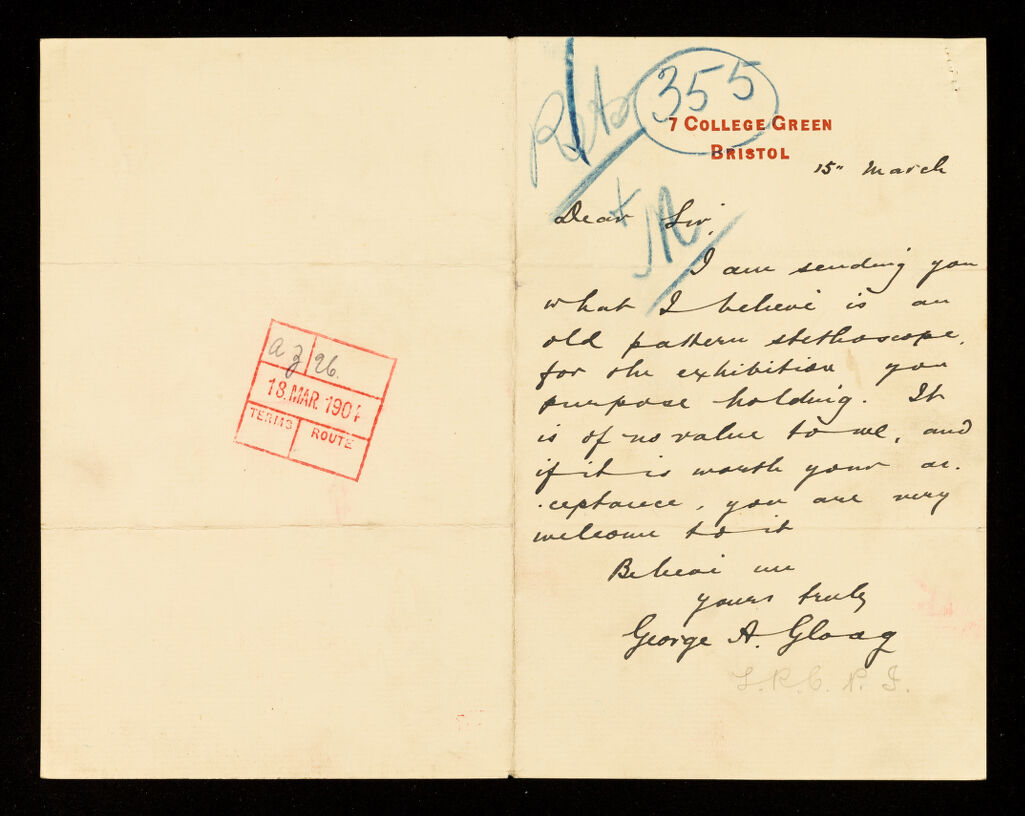 a z 26.
18. MAR. 1904
TERMS
ROUTE
355
7 COLLEGE GREEN
BRISTOL
15" March
Dear Sir,
M
I am sending you
what I believe is an
old pattern stethoscope,
for the exhibition you
purpose holding. It
is of no value to me, and
if it is worth your ac-
-ceptance, you are very
welcome to it
Believe me
yours truly
George A. Gloag
L.R.C.P.I.